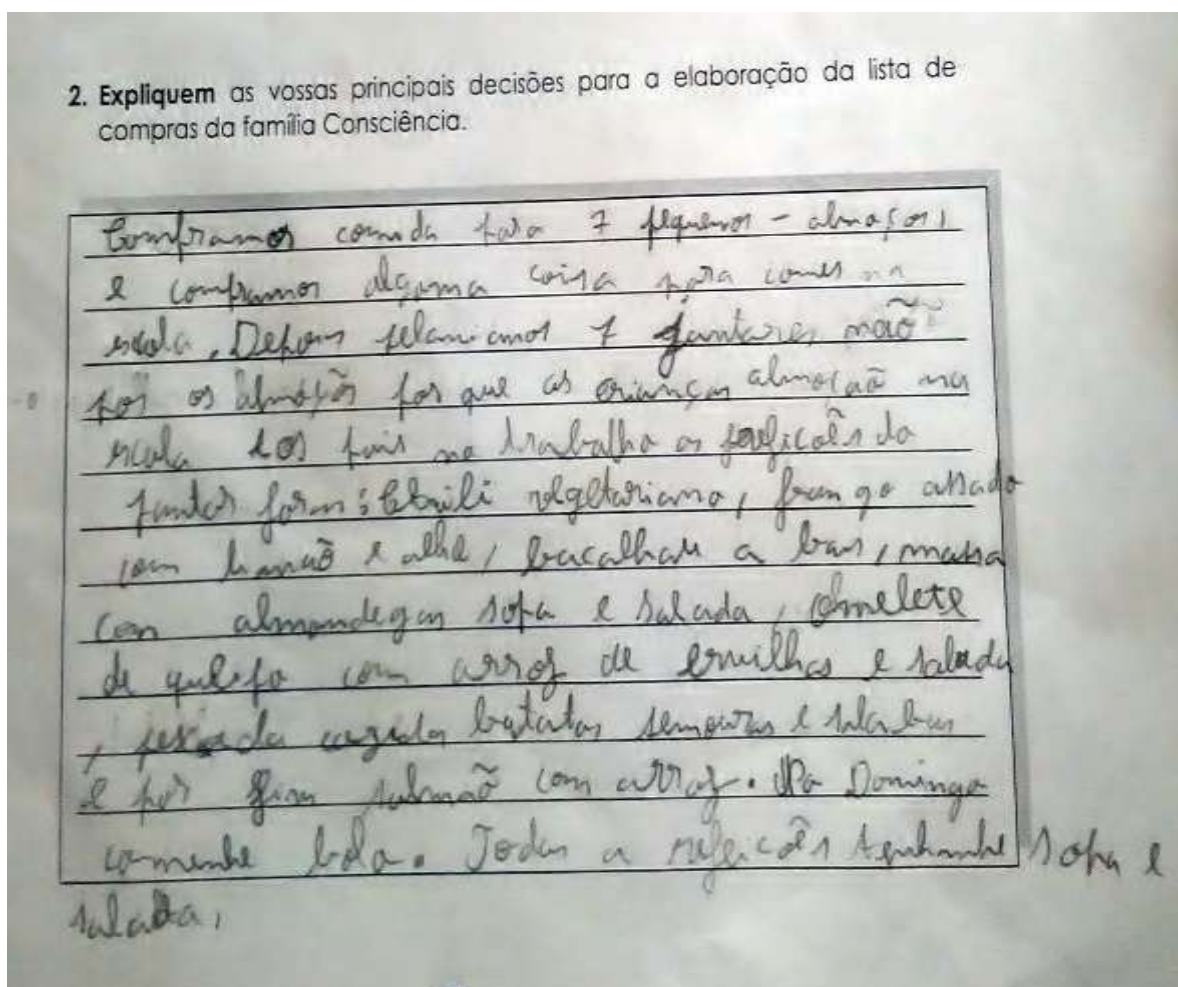 2. Expliquem as vossas principais decisões para a elaboração da lista de
compras da família Consciência.
Compramos comida para 7 pequenos-almoços,
e compramos algoma coisa para comer na
escola. Depois 7 jantares, não
os por que as crianças almoçaõ na
escola e os pais no trabalho as do
jantar foram: Chili vegetariano, frango assado
com limaõ e alho, bacalhau a bras, massa
com almondegas sopa e salada, omelete
de queijo com arroz de ervilhas e salada
, batatas semouras e
e por fim salmaõ com arroz. No Domingo
bolo. Todas a sopa e
salada,